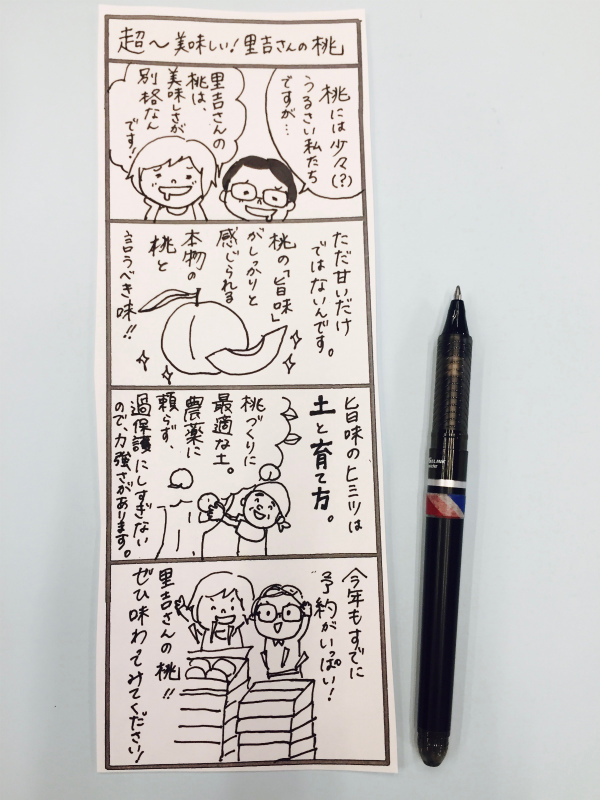 超～美味しい！里吉さんの桃
桃には少々(?)
うるさい私たち
ですが…
里吉さんの
桃は、
美味しさが
別格なん
です！
ただ甘いだけ
ではないんです。
桃の「旨味」
がしっかりと
感じられる
本物の
桃と
言うべき味!!
旨味のヒミツは
土と育て方。
桃づくりに
最適な土。
農薬に
頼らず、
過保護にしすぎない
ので、力強さがあります。
今年もすでに
予約がいっぱい！
里吉さんの桃!!
ぜひ味わってみてください！